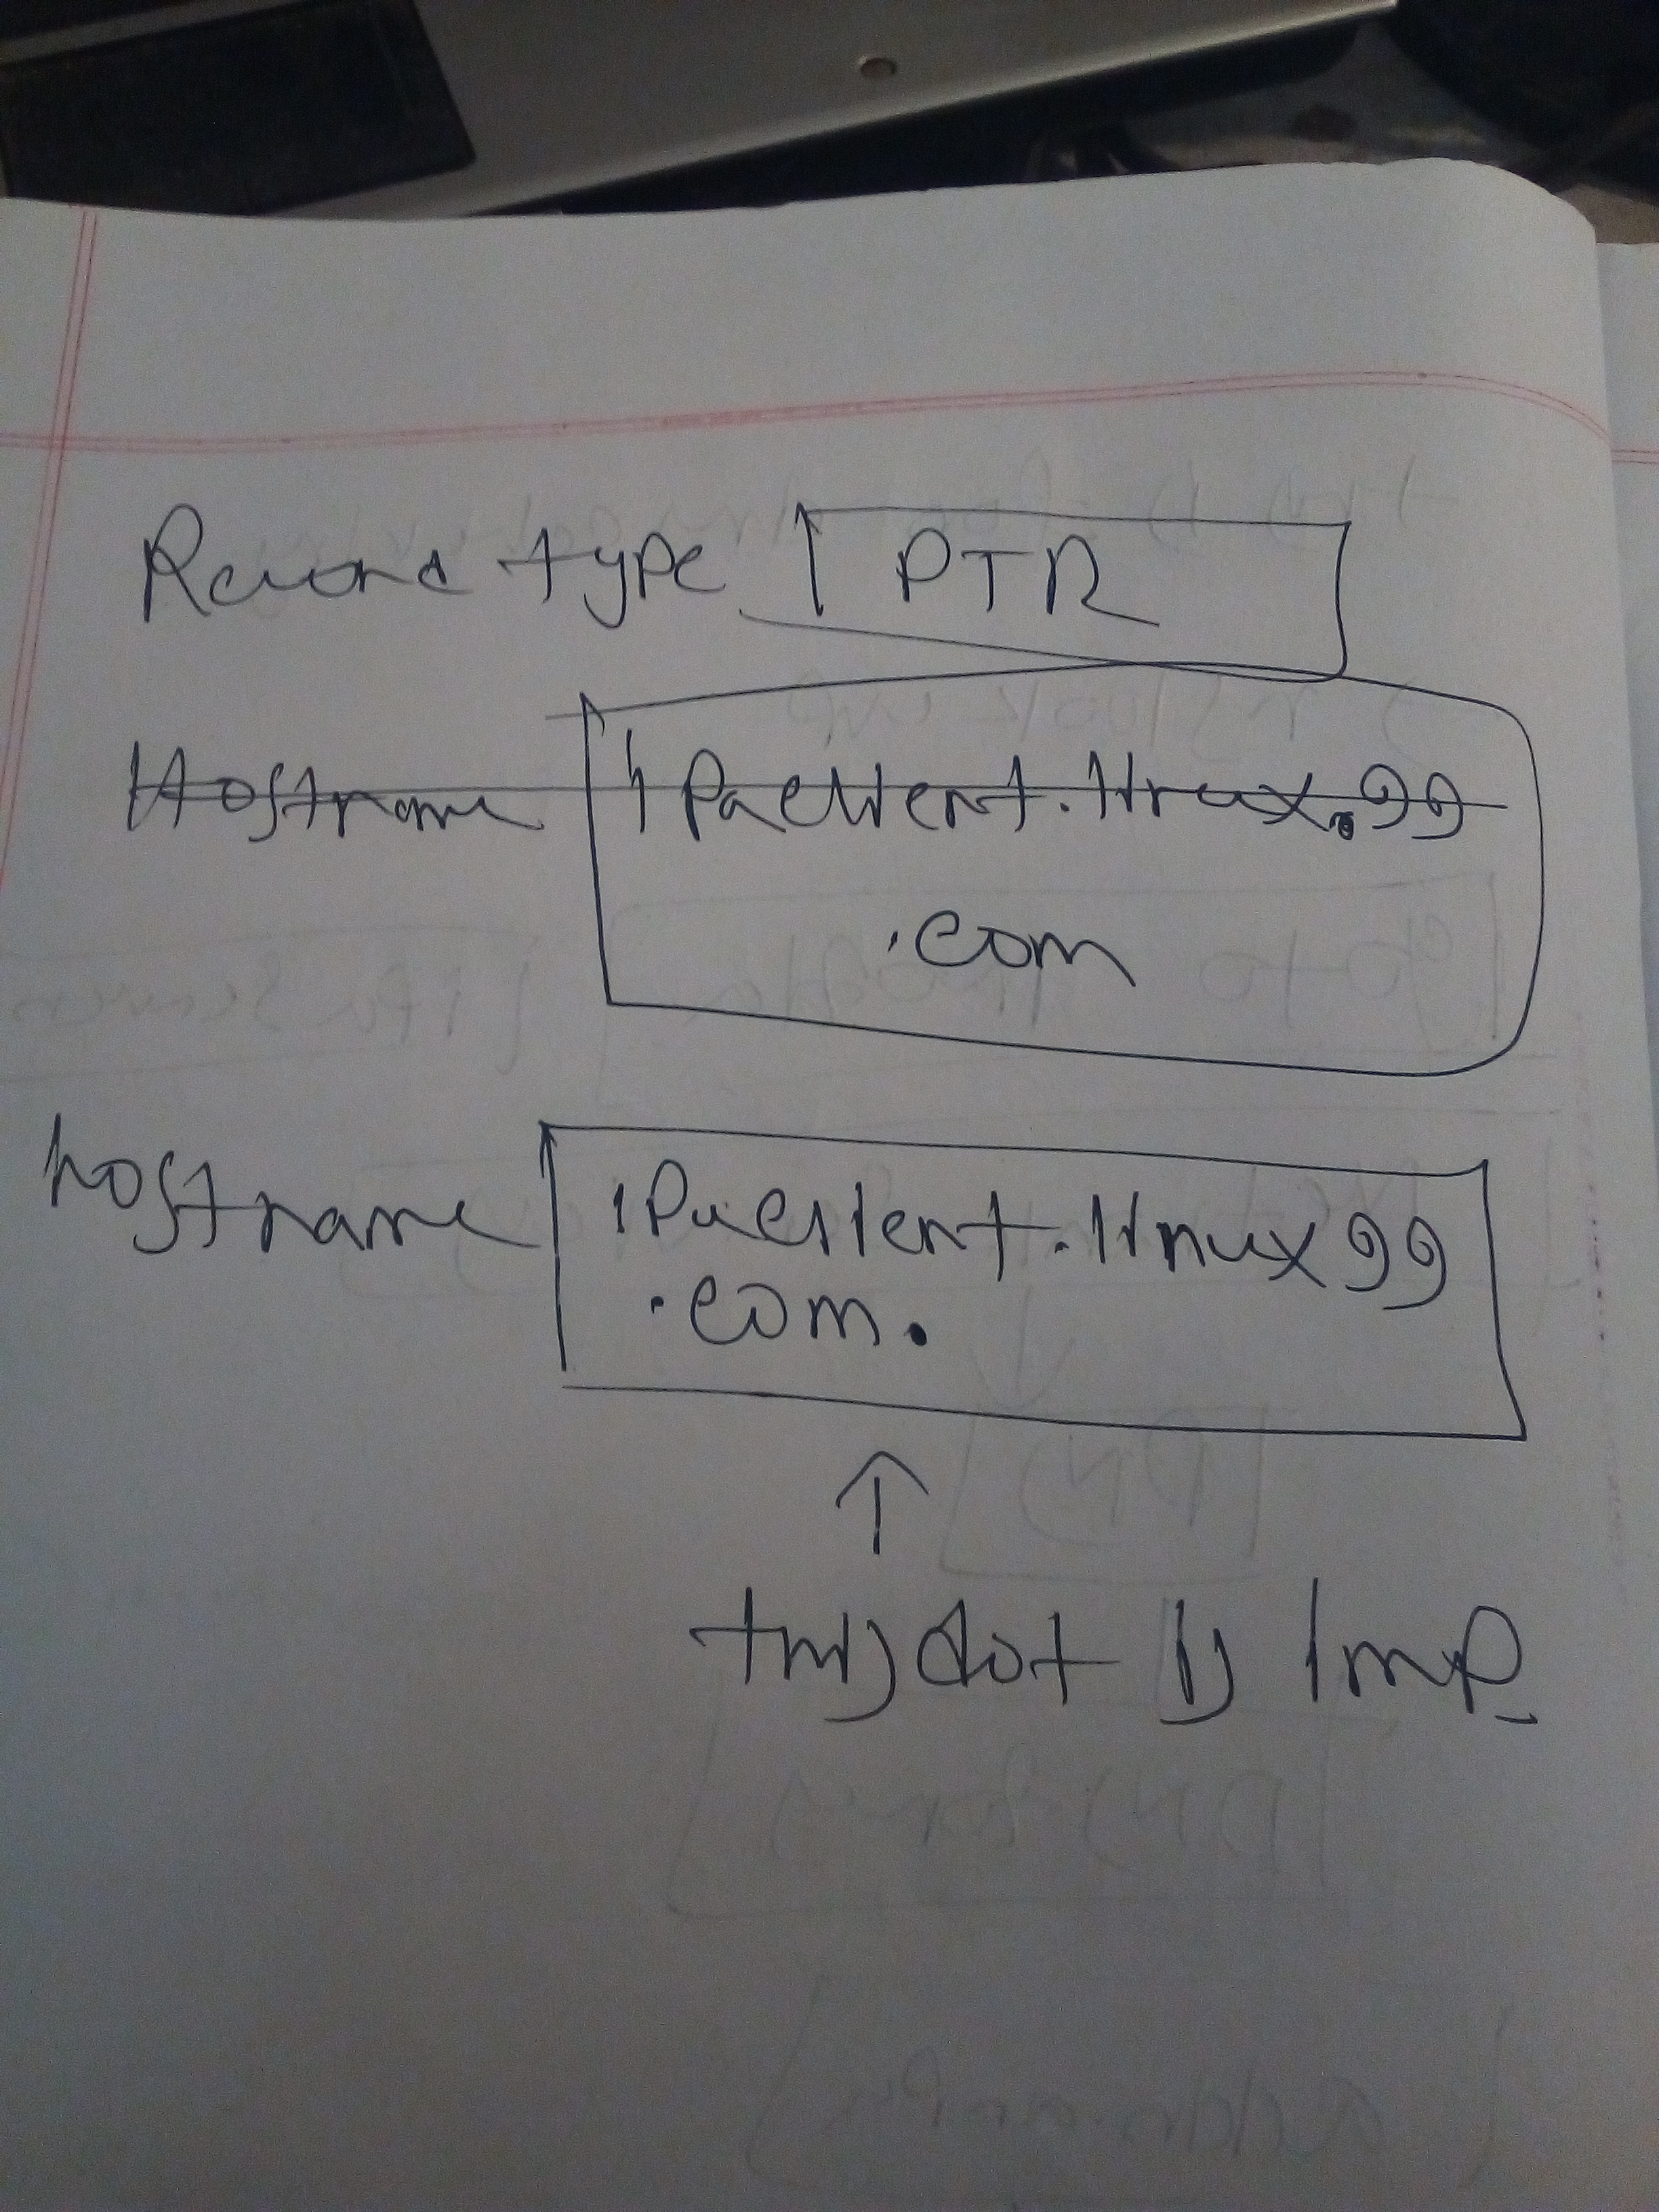 Record type PTR
Hostname ipaclient.linux.99
.com
hostname ipaclient.linux99
.com.
↑
this dot is Imp.